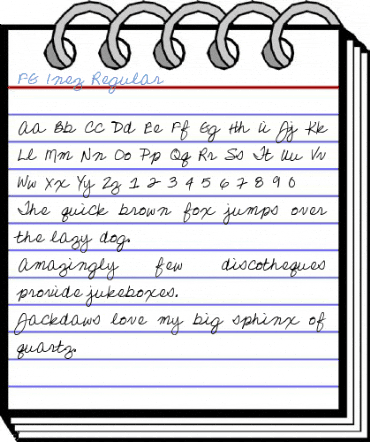 PE Inez Regular
Aa Bb Cc Dd Ee Ff Gg Hh Ii Jj Kk
Ll Mm Nn Oo Pp Qq Rr Ss Tt Uu Vv
Ww Xx Yy Zz 1 2 3 4 5 6 7 8 9 0
The quick brown fox jumps over
the lazy dog.
Amazingly few discotheques
provide jukeboxes.
Jackdaws love my big sphinx of
quartz.